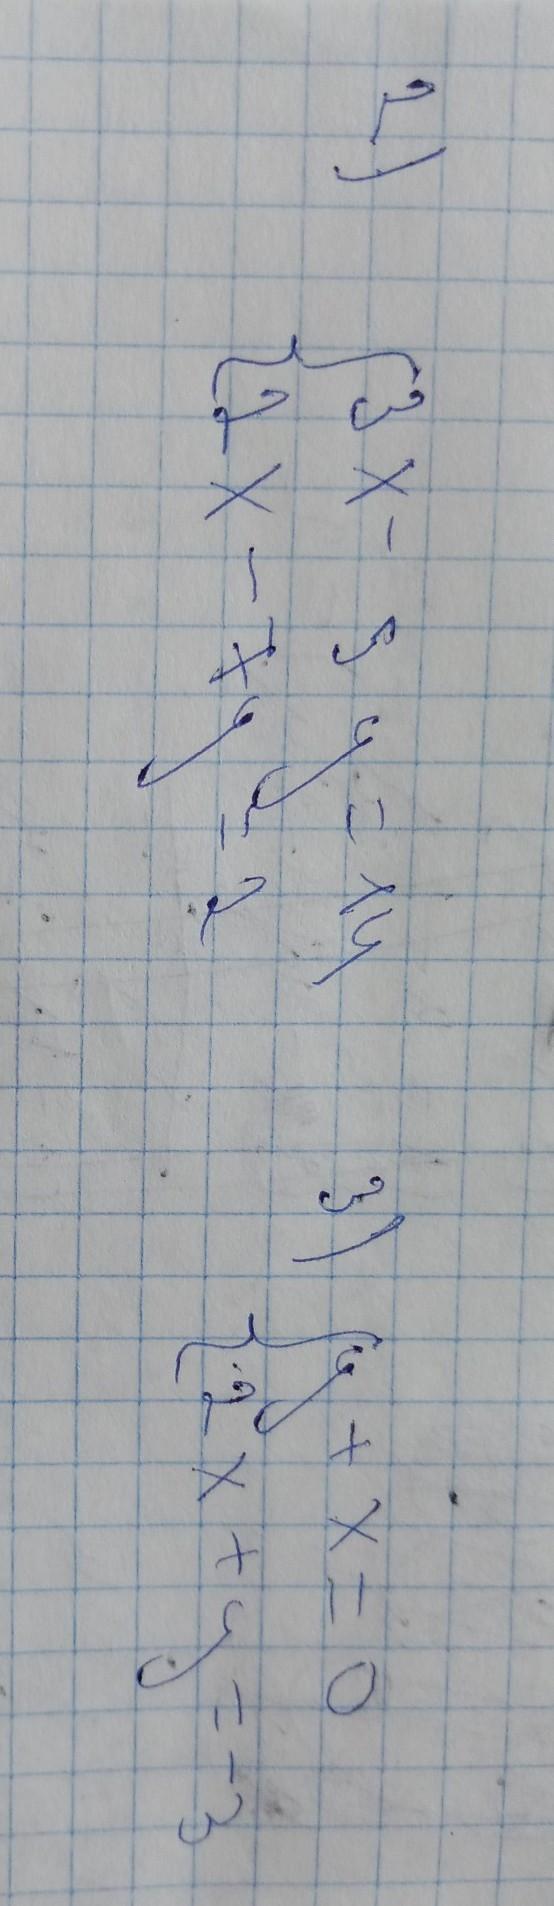 2)
3x - 5y = 14
2x - 7y = 2
3)
y + x = 0
2x + y = -3